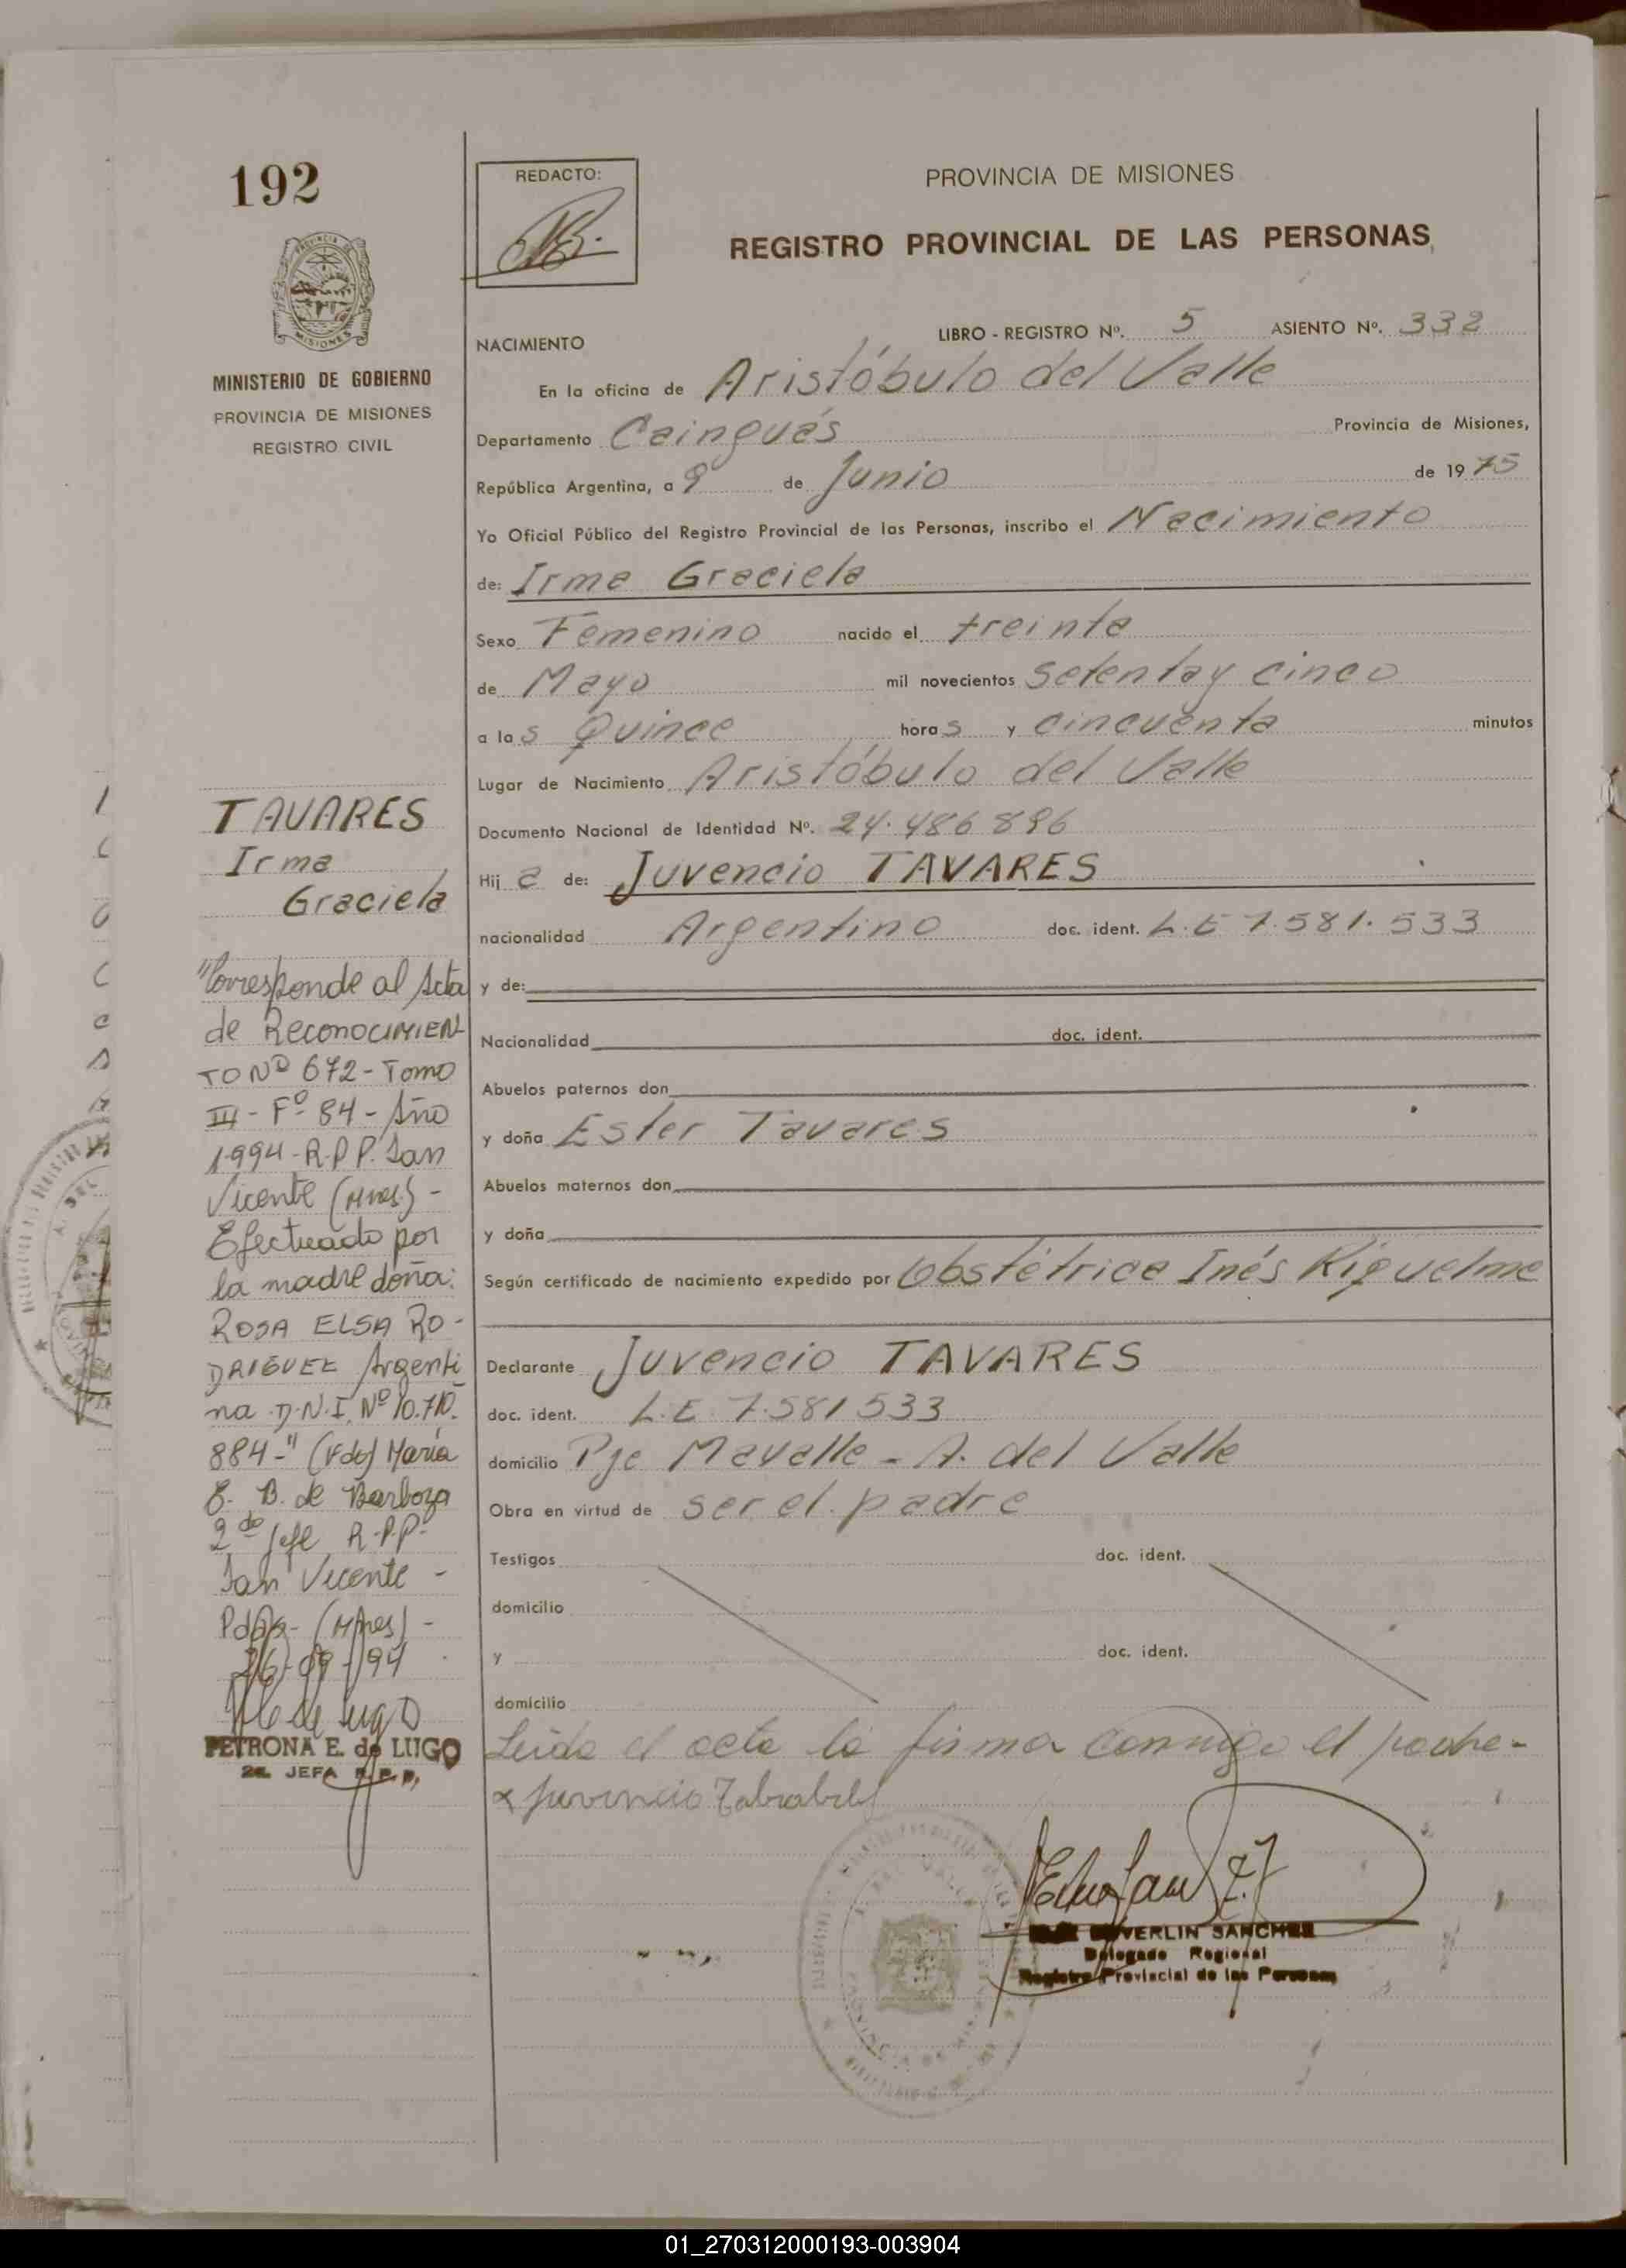 192
REDACTO:
PROVINCIA DE MISIONES
REGISTRO PROVINCIAL DE LAS PERSONAS
MINISTERIO DE GOBIERNO
PROVINCIA DE MISIONES
REGISTRO CIVIL
LIBRO - REGISTRO Nº. 5 ASIENTO Nº. 332
NACIMIENTO
En la oficina de Aristóbulo del Valle
Departamento Cainguás Provincia de Misiones,
República Argentina, a 9 de Junio de 1975
Yo Oficial Público del Registro Provincial de las Personas, inscribo el Nacimiento
de: Irma Graciela
Sexo Femenino nacido el treinta
de Mayo mil novecientos setenta y cinco
a las Quince horas y cincuenta minutos
Lugar de Nacimiento Aristóbulo del Valle
Documento Nacional de Identidad Nº. 24.486896
Hija de: Juvencio TAVARES
nacionalidad Argentino doc. ident. L.E 7.581.533
y de:
Nacionalidad doc. ident.
Abuelos paternos don
y doña Ester Tavares
Abuelos maternos don
y doña
Según certificado de nacimiento expedido por Obstétrica Inés Riquelme
Declarante Juvencio TAVARES
doc. ident. L.E. 7.581533
domicilio Pje Mavalle - A. del Valle
Obra en virtud de ser el padre
Testigos doc. ident.
domicilio
y doc. ident.
domicilio
Leida el acta la firma conmigo el padre-
TAVARES
Irma
Graciela
"Corresponde al Acta
de RECONOCIMIEN
TO Nº 672 - Tomo
III - Fº 84 - Año
1994 - R.P.P. San
Vicente (Mnes) -
Efectuado por
la madre doña:
ROSA ELSA RO-
DRIGUEZ Argenti
na D.N.I. Nº 10.710.
884-" (Fdo) María
E. B. de Barboza
2do Jefe R.P.P.
San Vicente -
Pdas- (Mnes) -
26-09-94
PETRONA E. de LUGO
2a. JEFA R.P.P.
VERLIN SANCHEZ
Delegado Regional
Registro Provincial de las Personas
01_270312000193-003904